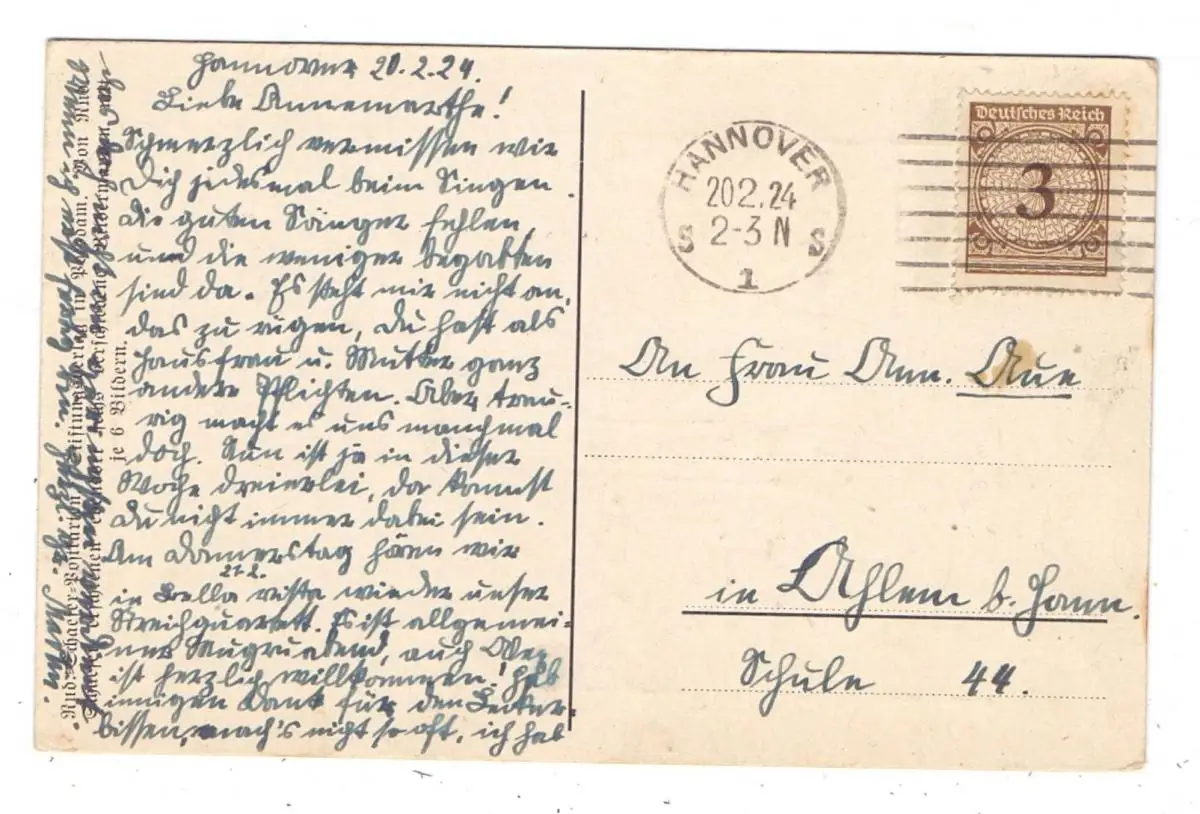 Hannover 20.2.24.
Liebe Annemarthe!
Schmerzlich vermissen wir
Dich jedesmal beim Singen.
Die guten Sänger fehlen,
und die weniger begabten
sind da. Es steht mir nicht an,
das zu rügen, Du hast als
Hausfrau u. Mutter ganz
andere Pflichten. Aber trau-
rig macht es uns manchmal
doch. Nun ist ja in dieser
Woche dreierlei, da kannst
Du nicht immer dabei sein.
Am Donnerstag hören wir
21.2.
in Bella vista wieder unser
Streichquartett. Es ist allgemei-
ner abend, auch
ist herzlich willkommen! Hab
innigen Dank für den Lecker-
bissen, mach's nicht so oft, ich hab
Rud. Schaefer-Postkarten Stiftungsverlag in Potsdam. Von Rud.
Schaefer erschienen sechs verschiedene
je 6 Bildern.
HANNOVER
20.2.24
2-3 N
S S
1
Deutsches Reich
3
An Frau Ann. Aue
in Ahlem b. Hann.
Schule 44.